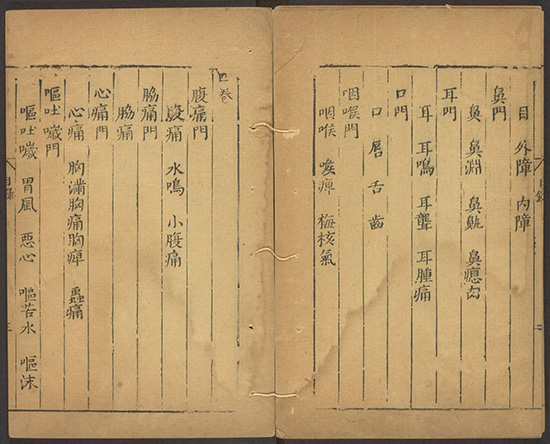 目　外障　內障
鼻門
鼻　鼻淵　鼻鼽　鼻瘜肉
耳門
耳　耳鳴　耳聾　耳腫痛
口門
口　唇　舌　齒
咽喉門
咽喉　喉痺　梅核氣
目錄
二
四卷
腹痛門
腹痛　水鳴　小腹痛
脇痛門
脇痛
心痛門
心痛　胸滿胸痛胸痺　蟲痛
嘔吐噦門
嘔吐噦　胃風　惡心　嘔苦水　嘔沫
目錄
三